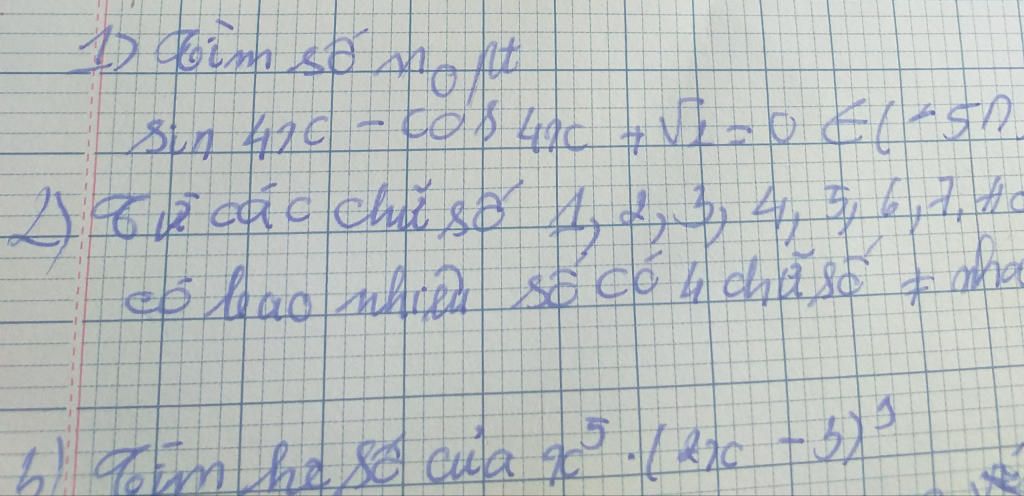 1) Tìm số no pt
sin 4x - cos 4x + √2 = 0 ∈ (-5π
2) Từ các chữ số 1, 2, 3, 4, 5, 6, 7.
có bao nhiêu số có 4 chữ số ≠ nha
Tìm hệ số của x⁵ . (2x - 3)